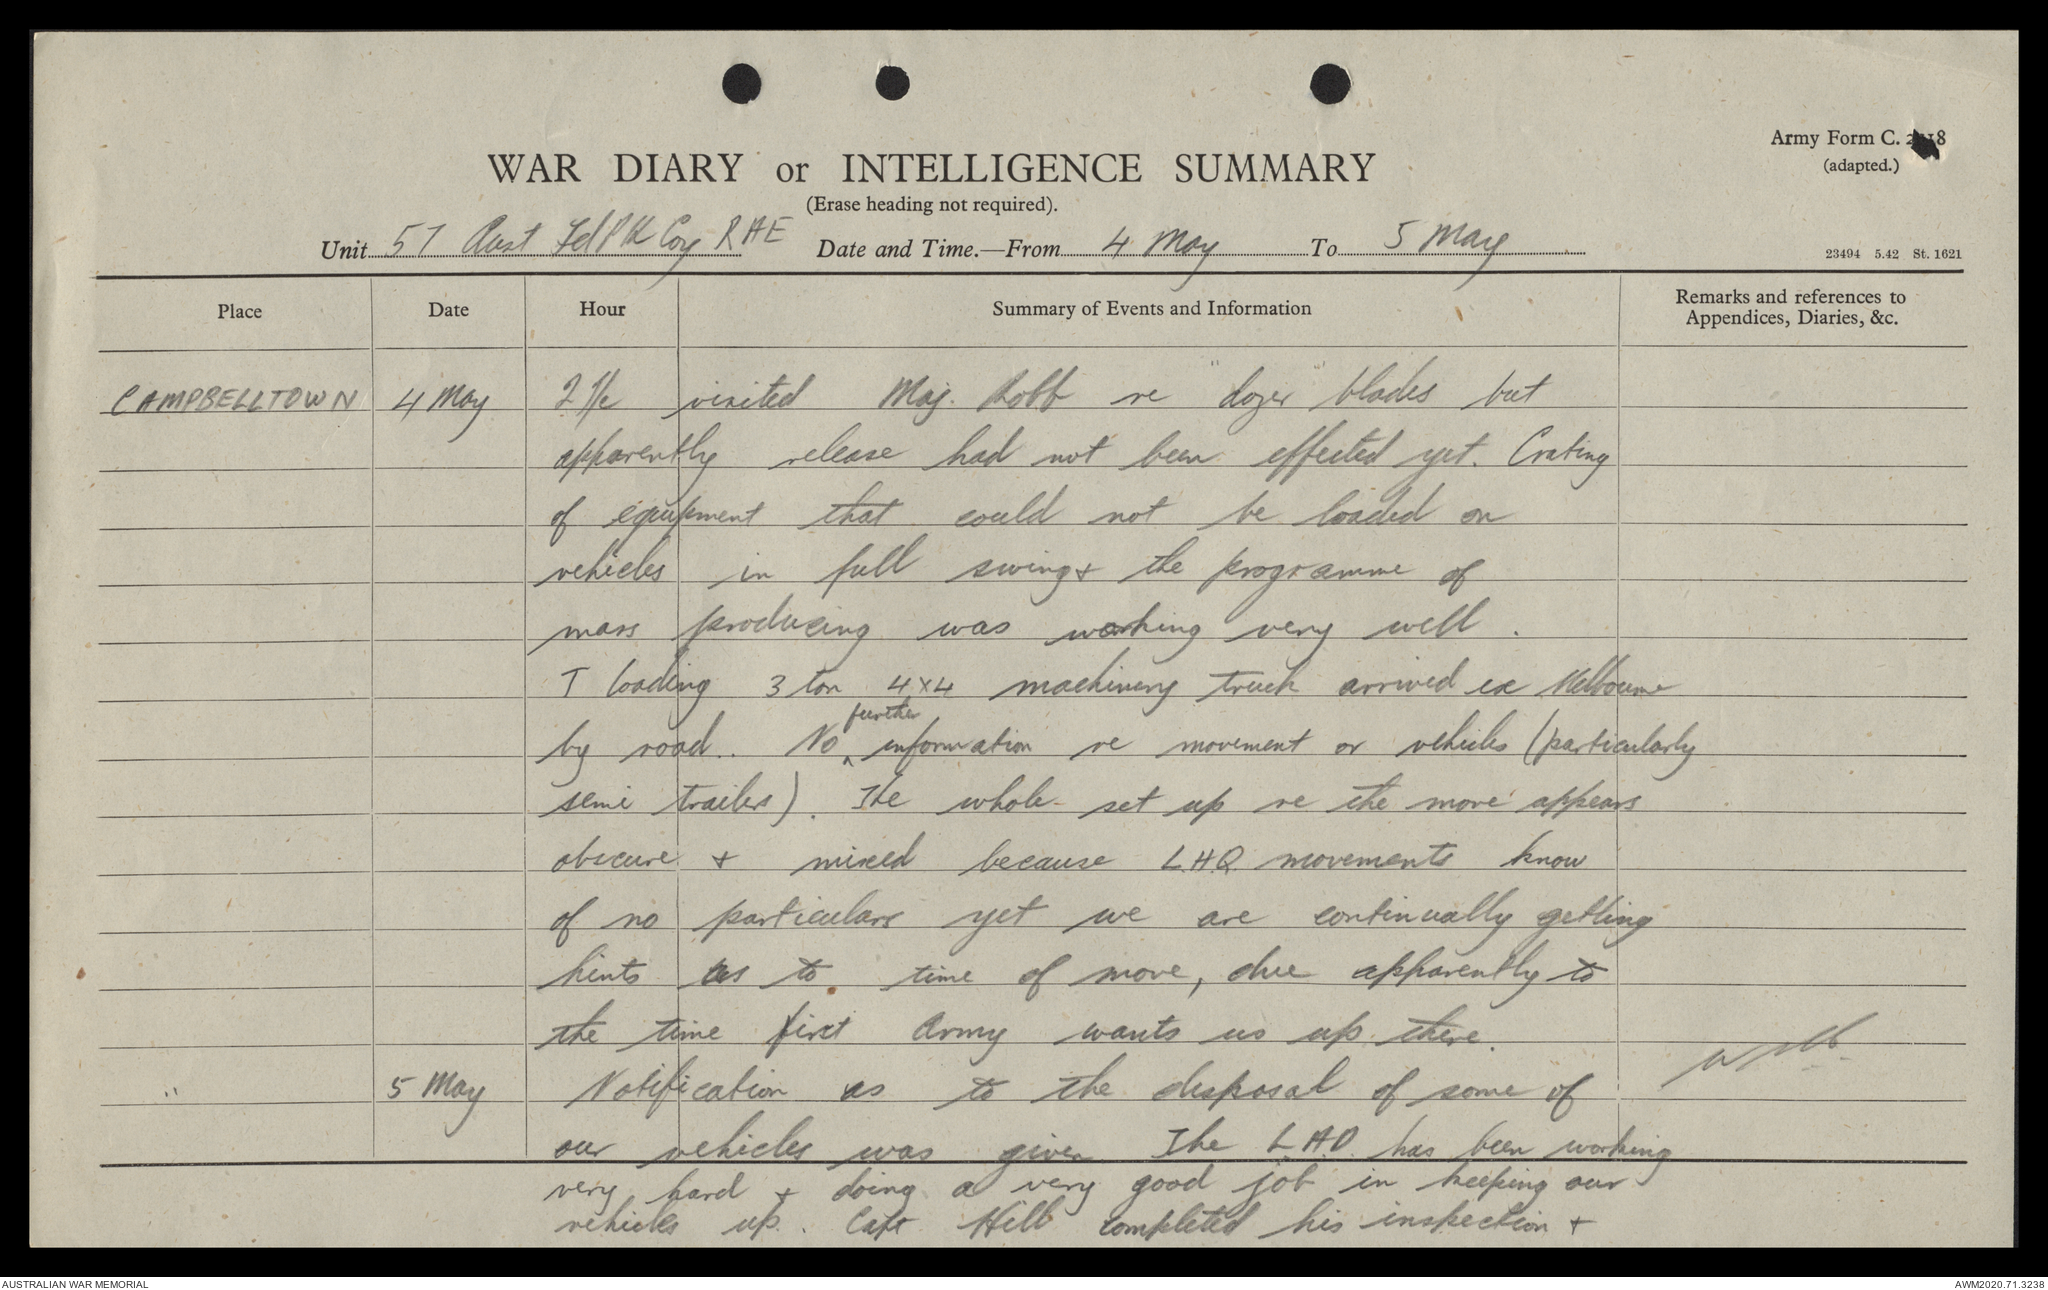 Army Form C. 2118
(adapted.)
WAR DIARY or INTELLIGENCE SUMMARY
(Erase heading not required).
Unit 57 Aust Fd Pk Coy RAE Date and Time.—From 4 May To 5 May
23494 5.42 St. 1621
Place Date Hour Summary of Events and Information Remarks and references to Appendices, Diaries, &c.
CAMPBELLTOWN 4 May 2 I/c visited Maj. Robb re "dozer" blades but
apparently release had not been effected yet. Crating
of equipment that could not be loaded on
vehicles in full swing & the programme of
mass producing was working very well.
T loading 3 ton 4x4 machinery truck arrived ex Melbourne
by road.. No further information re movement or vehicles (particularly
semi trailers). The whole set up re the move appears
obscure + mixed because L.H.Q. movements know
of no particulars yet we are continually getting
hints as to time of move, due apparently to
the time first Army wants us up there.
" 5 May Notification as to the disposal of some of
our vehicles was given The L.A.D. has been working
very hard + doing a very good job in keeping our
vehicles up. Capt Hill completed his inspection +
AUSTRALIAN WAR MEMORIAL
AWM2020.71.3238